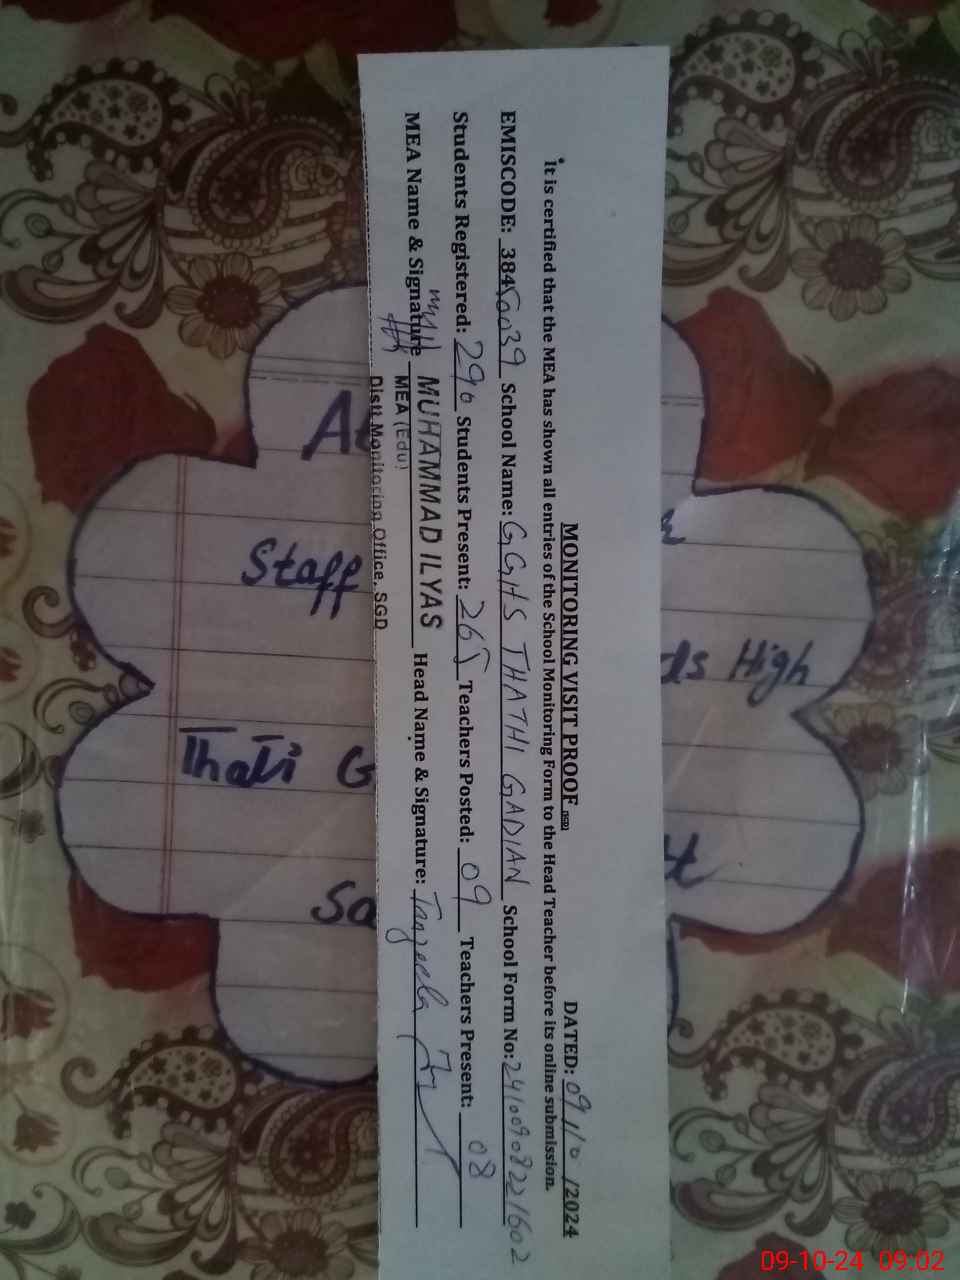 MONITORING VISIT PROOF (SGD) DATED: 09/10/2024
it is certified that the MEA has shown all entries of the School Monitoring Form to the Head Teacher before its online submission.
EMISCODE: 38450039 School Name: GGHS THATHI GADIAN School Form No: 24100908221602
Students Registered: 290 Students Present: 265 Teachers Posted: 09 Teachers Present: 08
MEA Name & Signature MUHAMMAD ILYAS Head Name & Signature: Tanzeela
MEA (Edu)
Distt Monitoring Office, SGD
Staff
ds High
Thati G
t
Sa
09-10-24 09:02